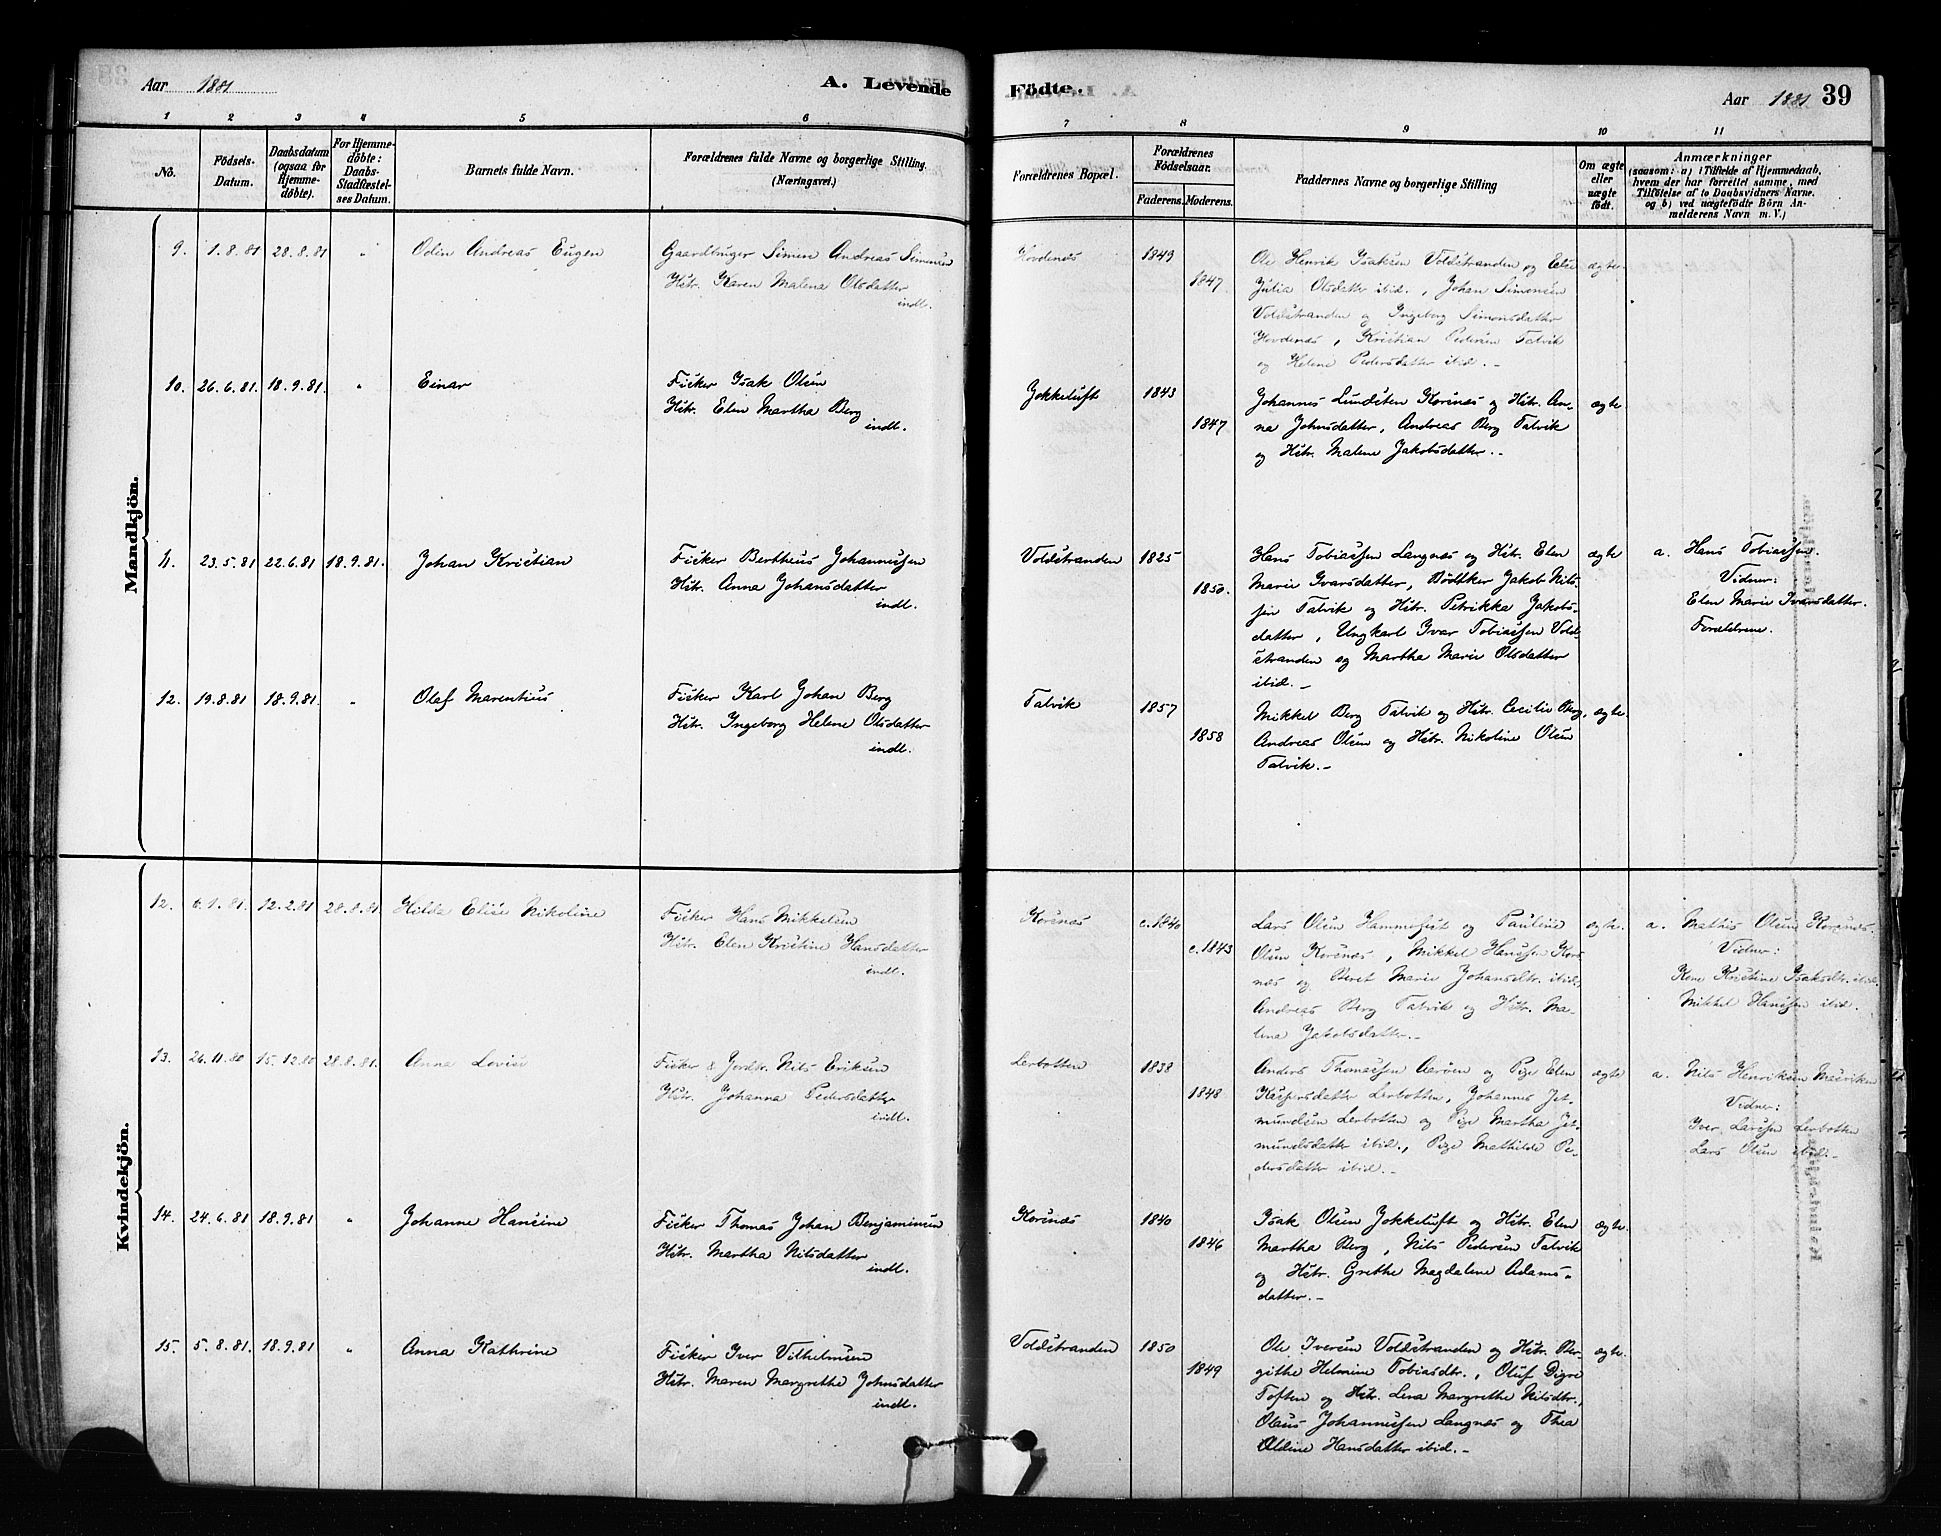 Aar 1881 A. Levende Födte. Aar 1881. 39
1 2 3 4 5 6 7 8 9 10 11
No. Födsels-Datum. Daabsdatum (ogsaa for Hjemmedöbte). For Hjemmedöbte: Daabs-Stadfæstelses Datum. Barnets fulde Navn. Forældrenes fulde Navne og borgerlige Stilling. (Næringsvei.) Forældrenes Bopæl. Forældrenes Födselsaar. Faderens. Moderens. Faddernes Navne og borgerlige Stilling Om ægte eller uægte födt. Anmærkninger
(saasom: a) i Tilfælde af Hjemmedaab,
hvem der har forrettet samme, med
Tilföielse af to Daabsvidners Navne.
og b) ved uægtefödte Börn An-
melderens Navn m. V.)
Mandkjön.
9. 1.8.81 28.8.81 " Odin Andreas Eugen Gaardbruger Simon Andreas Simonsen Hovdenæs 1849 Ole Henrik Isaksen Voldstranden og Else ægte.
Hstr. Karen Malena Olsdatter 1847. Julia Olsdatter ibid., Johan Simonsen
indl. Voldstranden og Ingeborg Simonsdatter
Hovdenæs, Kristian Pedersen Talvik
og Helene Pedersdatter ibid. -
10. 26.6.81. 18.9.81. " Einar Fisker Isak Olsen Jokkeluft 1843 Johannes Lundsten Korsnæs og Hstr. An- ægte.
Hstr. Elen Martha Berg 1847 na Johnsdatter, Andreas Berg Talvik
indl. og Hstr. Malene Jakobsdatter. -
11. 23.5.81 22.6.81 18.9.81. Johan Kristian Fisker Bertheus Johannessen Voldstranden 1825 Hans Tobiassen Langnæs og Hstr. Elen ægte a. Hans Tobiassen.
Hstr. Anna Johansdatter 1850. Marie Ivarsdatter, Bödtker Jakob Nils- Vidner:
indl. sen Talvik og Hstr. Petrikka Jakobs- Elen Marie Ivarsdatter.
datter, Ungkarl Ivar Tobiassen Vold- Forældrene.
stranden og Martha Marie Olsdatter
ibid. -
12. 19.8.81 18.9.81 " Olaf Marentius Fisker Karl Johan Berg Talvik 1857 Mikkel Berg Talvik og Hstr. Cecilie Berg, ægte.
Hstr. Ingeborg Helene Olsdatter 1858 Andreas Olsen og Hstr. Nikoline Olsen
indl. Talvik. -
Kvindekjön.
12. 6.1.81. 12.2.81 28.8.81. Hilda Elise Nikoline Fisker Hans Mikkelsen Korsnæs c.1840 Lars Olsen Hammerfest og Pauline ægte. a. Mathis Olsen Korsnæs.
Hstr. Elen Kristine Hansdatter c.1843 Olsen Korsnæs, Mikkel Hanssen Kors- Vidner:
indl. næs og Beret Marie Johansdtr. ibid. Kristine Isaksdtr. ibid.
Andreas Berg Talvik og Hstr. Ma- Mikkel Hanssen ibid.
lena Jakobsdatter. -
13. 26.11.80 15.12.80 28.8.81. Anna Lovise Fisker & Jordbr. Nils Eriksen Lerbotten 1838 Anders Thomassen Aaröen og Pige Elen ægte a. Nils Henriksen Masviken
Hstr. Johanna Pedersdatter 1848 Kaspersdatter Lerbotten, Johannes Jet- Vidner:
indl. mundsen Lerbotten og Pige Martha Jet- Iver Larssen Lerbotten
mundsdatter ibid., Pige Mathilde Pe- Lars Olsen ibid. -
dersdatter ibid. -
14. 24.6.81 18.9.81 " Johanne Hansine Fisker Thomas Johan Benjaminsen Korsnæs 1840 Isak Olsen Jokkeluft og Hstr. Elen ægte.
Hstr. Martha Nilsdatter 1846 Martha Berg, Nils Pedersen Talvik
indl. og Hstr. Grethe Magdalene Adams-
datter. -
15. 5.8.81. 18.9.81 " Anna Kathrine Fisker Iver Vilhelmsen Voldstranden 1850 Ole Iversen Voldstranden og Hstr. Ber- ægte.
Hstr. Maren Margrethe Johnsdatter 1849 githe Helmine Tobiasdtr., Oluf Digre
indl. Toften og Hstr. Lena Margrethe Nilsdtr.,
Olaus Johannessen Langnæs og Thea
Oldine Hansdatter ibid. -